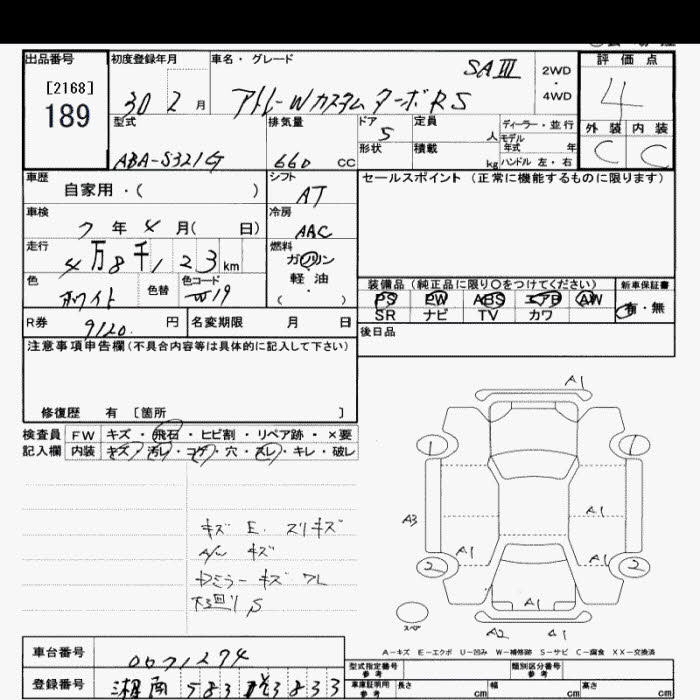 出品番号 初度登録年月 車名・グレード 評価点
[2168] SAⅢ 2WD
・
4WD 4
189 30 2月 アトレーWカスタムターボRS
外装 内装
C C
型式 排気量 ドア 定員 ディーラー・並行
5 人 モデル年式 年
ABA-S321G 660 CC 形状 積載 kg ハンドル 左・右
車歴 自家用・( ) シフト AT セールスポイント (正常に機能するものに限ります)
車検 7年4月( 日) 冷房 AAC
走行 4万8千123km 燃料 ガソリン
軽油
( )
色 ホワイト 色替 色コード W19
装備品(純正品に限り○をつけてください) 新車保証書
PS PW ABS エアB AW 有・無
SR ナビ TV カワ
R券 9120 円 名変期限 月 日 後日品
注意事項申告欄(不具合内容等は具体的に記入して下さい)
修復歴 有 [箇所 ]
検査員 FW キズ・飛石・ヒビ割・リペア跡・×要
記入欄 内装 キズ・汚レ・コゲ・穴・スレ・キレ・破レ
A1
1 1
A3 A1
A1 A1
2 2
A1
スペア
A2 A1
キズ E. スリキズ
A/W キズ
下回り S
A-キズ E-エクボ U-凹み W-補修跡 S-サビ C-腐食 XX-交換済
車台番号 0071274
型式指定番号 参考 類別区分番号 参考
登録番号 湘南 583 3833
車庫証明用 参考 長さ cm 幅 cm 高さ cm